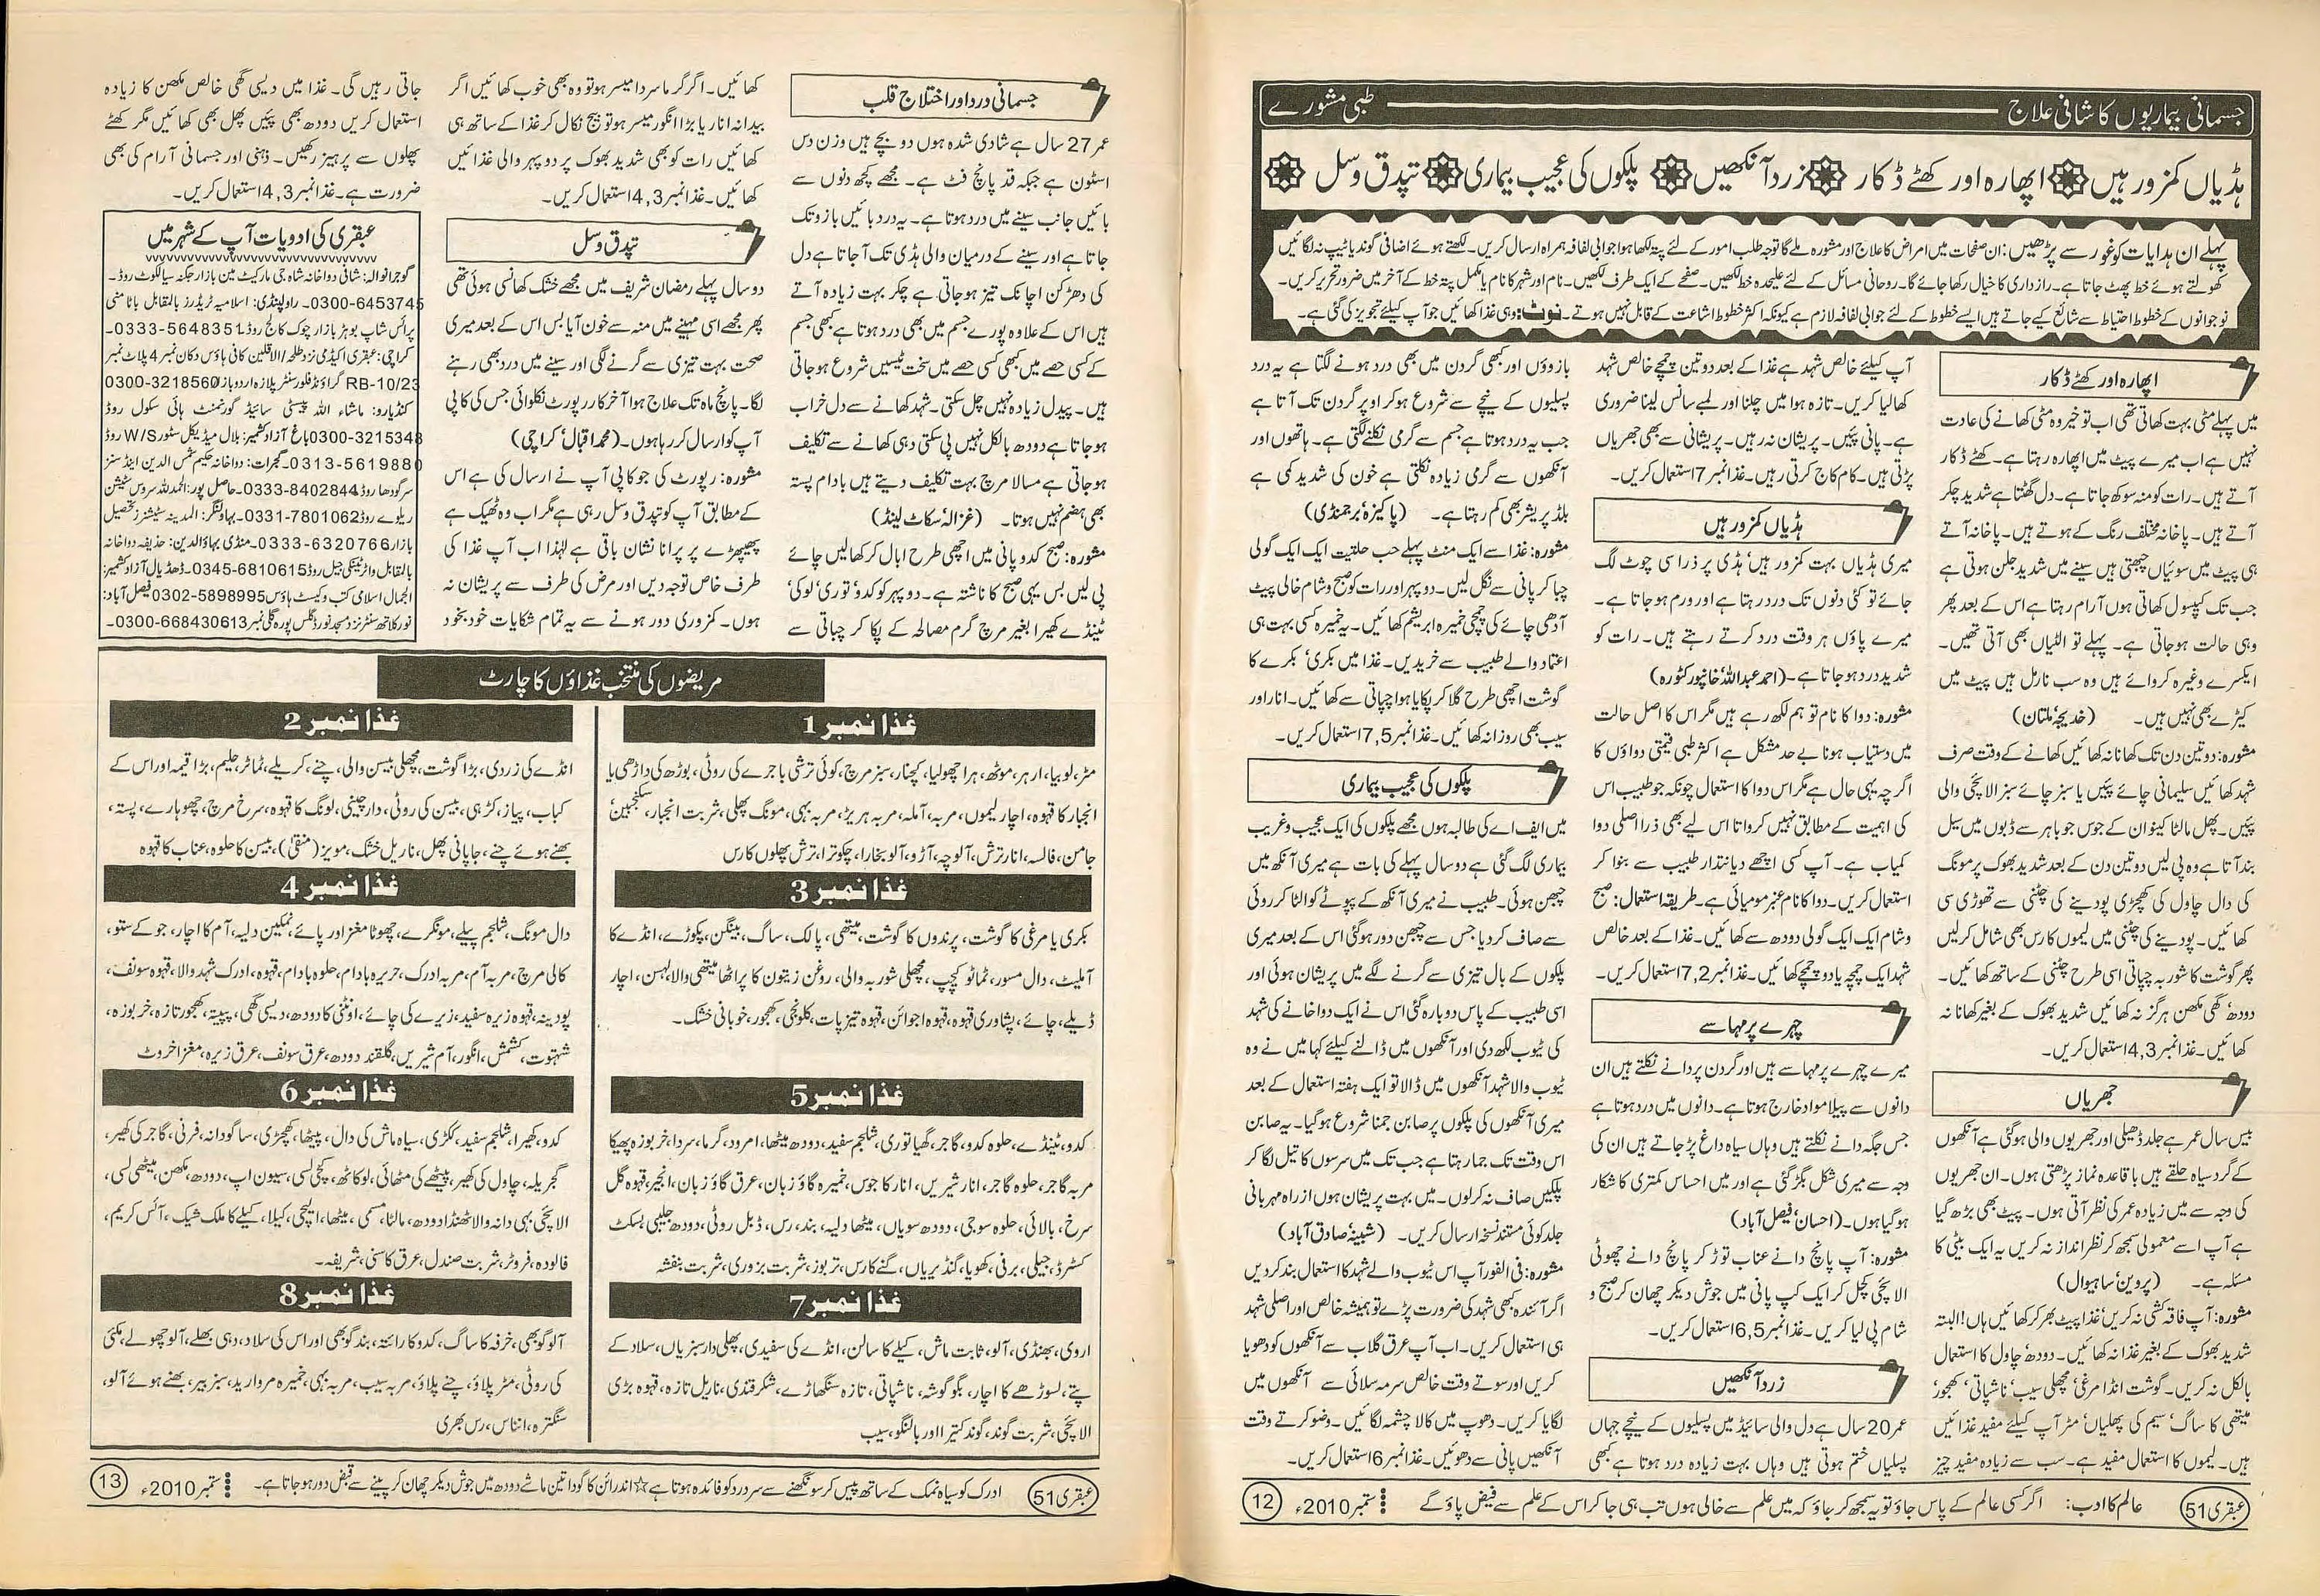 جسمانی بیماریوں کا شافی علاج
طبی مشورے
ہڈیاں کمزور ہیں اپھارہ اور کھٹے ڈکار زرد آنکھیں پلکوں کی عجیب بیماری تپدق وسل
پہلے ان ہدایات کو غور سے پڑھیں: ان صفحات میں امراض کا علاج اور مشورہ ملے گا توجہ طلب امور کے لئے پتہ لکھا ہوا جوابی لفافہ ہمراہ ارسال کریں۔ لکھتے ہوئے اضافی گوند یا ٹیپ نہ لگائیں
کھولتے ہوئے خط پھٹ جاتا ہے۔ رازداری کا خیال رکھا جائے گا۔ روحانی مسائل کے لئے علیحدہ خط لکھیں۔ صفحے کے ایک طرف لکھیں۔ نام اور شہر کا نام یا مکمل پتہ خط کے آخر میں ضرور تحریر کریں۔
نوجوانوں کے خطوط احتیاط سے شائع کیے جاتے ہیں ایسے خطوط کے لئے جوابی لفافہ لازم ہے کیونکہ اکثر خطوط اشاعت کے قابل نہیں ہوتے۔ نوٹ: وہی غذا کھائیں جو آپ کیلئے تجویز کی گئی ہے۔
اپھارہ اور کھٹے ڈکار
میں پہلے مٹی بہت کھاتی تھی اب تو خیر وہ مٹی کھانے کی عادت
نہیں ہے اب میرے پیٹ میں اپھارہ رہتا ہے۔ کھٹے ڈکار
آتے ہیں۔ رات کو منہ سوکھ جاتا ہے۔ دل گھٹتا ہے شدید چکر
آتے ہیں۔ پاخانہ مختلف رنگ کے ہوتے ہیں۔ پاخانہ آتے
ہی پیٹ میں سوئیاں چبھتی ہیں سینے میں شدید جلن ہوتی ہے
جب تک کیپسول کھاتی ہوں آرام رہتا ہے اس کے بعد پھر
وہی حالت ہو جاتی ہے۔ پہلے تو الٹیاں بھی آتی تھیں۔
ایکسرے وغیرہ کروائے ہیں وہ سب نارمل ہیں پیٹ میں
کیڑے بھی نہیں ہیں۔ (خدیجہ، ملتان)
مشورہ: دو تین دن تک کھانا نہ کھائیں کھانے کے وقت صرف
شہد کھائیں سلیمانی چائے پئیں یا سبز چائے سبز الائچی والی
پئیں۔ پھل مالٹا کینو ان کے جوس جو باہر سے ڈبوں میں سیل
بند آتا ہے وہ پی لیں دو تین دن کے بعد شدید بھوک پر مونگ
کی دال چاول کی کھچڑی پودینے کی چٹنی سے تھوڑی سی
کھائیں۔ پودینے کی چٹنی میں لیموں کا رس بھی شامل کر لیں
پھر گوشت کا شوربہ چپاتی اسی طرح چٹنی کے ساتھ کھائیں۔
دودھ، گھی مکھن ہرگز نہ کھائیں شدید بھوک کے بغیر کھانا نہ
کھائیں۔ غذا نمبر 4,3 استعمال کریں۔
جھریاں
بیس سال عمر ہے جلد ڈھیلی اور جھریوں والی ہو گئی ہے آنکھوں
کے گرد سیاہ حلقے ہیں باقاعدہ نماز پڑھتی ہوں۔ ان جھریوں
کی وجہ سے میں زیادہ عمر کی نظر آتی ہوں۔ پیٹ بھی بڑھ گیا
ہے آپ اسے معمولی سمجھ کر نظر انداز نہ کریں یہ ایک بیٹی کا
مسئلہ ہے۔ (پروین، ساہیوال)
مشورہ: آپ فاقہ کشی نہ کریں، غذا پیٹ بھر کر کھائیں ہاں! البتہ
شدید بھوک کے بغیر غذا نہ کھائیں۔ دودھ، چاول کا استعمال
بالکل نہ کریں۔ گوشت، انڈا مرغی، مچھلی سیب، ناشپاتی، کھجور،
میتھی کا ساگ، سیم کی پھلیاں، مٹر آپ کیلئے مفید غذائیں
ہیں۔ لیموں کا استعمال مفید ہے۔ سب سے زیادہ مفید چیز
آپ کیلئے خالص شہد ہے غذا کے بعد دو تین چمچے خالص شہد
کھا لیا کریں۔ تازہ ہوا میں چلنا اور لمبے سانس لینا ضروری
ہے۔ پانی پئیں۔ پریشان نہ رہیں۔ پریشانی سے بھی جھریاں
پڑتی ہیں۔ کام کاج کرتی رہیں۔ غذا نمبر 7 استعمال کریں۔
ہڈیاں کمزور ہیں
میری ہڈیاں بہت کمزور ہیں، ہڈی پر ذرا سی چوٹ لگ
جائے تو کئی دنوں تک درد رہتا ہے اور ورم ہو جاتا ہے۔
میرے پاؤں ہر وقت درد کرتے رہتے ہیں۔ رات کو
شدید درد ہو جاتا ہے۔ (احمد عبداللہ، خانپور کٹورہ)
مشورہ: دوا کا نام تو ہم لکھ رہے ہیں مگر اس کا اصل حالت
میں دستیاب ہونا بے حد مشکل ہے اکثر طبی قیمتی دواؤں کا
اگرچہ یہی حال ہے مگر اس دوا کا استعمال چونکہ جو طبیب اس
کی اہمیت کے مطابق نہیں کرواتا اس لیے بھی ذرا اصلی دوا
کمیاب ہے۔ آپ کسی اچھے دیانتدار طبیب سے بنوا کر
استعمال کریں۔ دوا کا نام عنبر مومیائی ہے۔ طریقہ استعمال: صبح
وشام ایک ایک گولی دودھ سے کھائیں۔ غذا کے بعد خالص
شہد ایک چمچہ یا دو چمچے کھائیں۔ غذا نمبر 7,2 استعمال کریں۔
چہرے پر مہاسے
میرے چہرے پر مہاسے ہیں اور گردن پر دانے نکلتے ہیں ان
دانوں سے پیلا مواد خارج ہوتا ہے۔ دانوں میں درد ہوتا ہے
جس جگہ دانے نکلتے ہیں وہاں سیاہ داغ پڑ جاتے ہیں ان کی
وجہ سے میری شکل بگڑ گئی ہے اور میں احساس کمتری کا شکار
ہو گیا ہوں۔ (احسان، فیصل آباد)
مشورہ: آپ پانچ دانے عناب توڑ کر پانچ دانے چھوٹی
الائچی کچل کر ایک کپ پانی میں جوش دیکر چھان کر صبح و
شام پی لیا کریں۔ غذا نمبر 6,5 استعمال کریں۔
زرد آنکھیں
عمر 20 سال ہے دل والی سائیڈ میں پسلیوں کے نیچے جہاں
پسلیاں ختم ہوتی ہیں وہاں بہت زیادہ درد ہوتا ہے کبھی
بازوؤں اور کبھی گردن میں بھی درد ہونے لگتا ہے یہ درد
پسلیوں کے نیچے سے شروع ہو کر اوپر گردن تک آتا ہے
جب یہ درد ہوتا ہے جسم سے گرمی نکلنے لگتی ہے۔ ہاتھوں اور
آنکھوں سے گرمی زیادہ نکلتی ہے خون کی شدید کمی ہے
بلڈ پریشر بھی کم رہتا ہے۔ (پاکیزہ، برجمنڈی)
مشورہ: غذا سے ایک منٹ پہلے حب حلتیت ایک ایک گولی
چبا کر پانی سے نگل لیں۔ دوپہر اور رات کو صبح وشام خالی پیٹ
آدھی چائے کی چمچی خمیرہ ابریشم کھائیں۔ یہ خمیرہ کسی بہت ہی
اعتماد والے طبیب سے خریدیں۔ غذا میں بکری، بکرے کا
گوشت اچھی طرح گلا کر پکایا ہوا چپاتی سے کھائیں۔ انار اور
سیب بھی روزانہ کھائیں۔ غذا نمبر 7,5 استعمال کریں۔
پلکوں کی عجیب بیماری
میں ایف اے کی طالبہ ہوں مجھے پلکوں کی ایک عجیب وغریب
بیماری لگ گئی ہے دو سال پہلے کی بات ہے میری آنکھ میں
چبھن ہوئی۔ طبیب نے میری آنکھ کے پپوٹے کو الٹا کر روئی
سے صاف کر دیا جس سے چبھن دور ہو گئی اس کے بعد میری
پلکوں کے بال تیزی سے گرنے لگے میں پریشان ہوئی اور
اسی طبیب کے پاس دوبارہ گئی اس نے ایک دواخانے کی شہد
کی ٹیوب لکھ دی اور آنکھوں میں ڈالنے کیلئے کہا میں نے وہ
ٹیوب والا شہد آنکھوں میں ڈالا تو ایک ہفتہ استعمال کے بعد
میری آنکھوں کی پلکوں پر صابن جمنا شروع ہو گیا۔ یہ صابن
اس وقت تک جما رہتا ہے جب تک میں سرسوں کا تیل لگا کر
پلکیں صاف نہ کر لوں۔ میں بہت پریشان ہوں از راہ مہربانی
جلد کوئی مستند نسخہ ارسال کریں۔ (شبینہ، صادق آباد)
مشورہ: فی الفور آپ اس ٹیوب والے شہد کا استعمال بند کر دیں
اگر آئندہ کبھی شہد کی ضرورت پڑے تو ہمیشہ خالص اور اصلی شہد
ہی استعمال کریں۔ اب آپ عرق گلاب سے آنکھوں کو دھویا
کریں اور سوتے وقت خالص سرمہ سلائی سے آنکھوں میں
لگایا کریں۔ دھوپ میں کالا چشمہ لگائیں۔ وضو کرتے وقت
آنکھیں پانی سے دھوئیں۔ غذا نمبر 6 استعمال کریں۔
عبقری 51
عالم کا ادب: اگر کسی عالم کے پاس جاؤ تو یہ سمجھ کر جاؤ کہ میں علم سے خالی ہوں تب ہی جا کر اس کے علم سے فیض پاؤ گے
ستمبر 2010ء
12
جسمانی درد اور اختلاج قلب
عمر 27 سال ہے شادی شدہ ہوں دو بچے ہیں وزن دس
اسٹون ہے جبکہ قد پانچ فٹ ہے۔ مجھے کچھ دنوں سے
بائیں جانب سینے میں درد ہوتا ہے۔ یہ درد بائیں بازو تک
جاتا ہے اور سینے کے درمیان والی ہڈی تک آ جاتا ہے دل
کی دھڑکن اچانک تیز ہو جاتی ہے چکر بہت زیادہ آتے
ہیں اس کے علاوہ پورے جسم میں بھی درد ہوتا ہے کبھی جسم
کے کسی حصے میں کبھی کسی حصے میں سخت ٹیسیں شروع ہو جاتی
ہیں۔ پیدل زیادہ نہیں چل سکتی۔ شہد کھانے سے دل خراب
ہو جاتا ہے دودھ بالکل نہیں پی سکتی دہی کھانے سے تکلیف
ہو جاتی ہے مسالا مرچ بہت تکلیف دیتے ہیں بادام پستہ
بھی ہضم نہیں ہوتا۔ (غزالہ، سکاٹ لینڈ)
مشورہ: صبح کدو پانی میں اچھی طرح ابال کر کھا لیں چائے
پی لیں بس یہی صبح کا ناشتہ ہے۔ دوپہر کو کدو، توری، لوکی،
ٹینڈے کھیرا بغیر مرچ گرم مصالحہ کے پکا کر چپاتی سے
کھائیں۔ اگر گرما سردا میسر ہو تو وہ بھی خوب کھائیں اگر
بیدانہ انار یا بڑا انگور میسر ہو تو بیج نکال کر غذا کے ساتھ ہی
کھائیں رات کو بھی شدید بھوک پر دوپہر والی غذائیں
کھائیں۔ غذا نمبر 4,3 استعمال کریں۔
تپدق وسل
دو سال پہلے رمضان شریف میں مجھے خشک کھانسی ہوئی تھی
پھر مجھے اسی مہینے میں منہ سے خون آیا بس اس کے بعد میری
صحت بہت تیزی سے گرنے لگی اور سینے میں درد بھی رہنے
لگا۔ پانچ ماہ تک علاج ہوا آخر کار رپورٹ نکلوائی جس کی کاپی
آپ کو ارسال کر رہا ہوں۔ (محمد اقبال، کراچی)
مشورہ: رپورٹ کی جو کاپی آپ نے ارسال کی ہے اس
کے مطابق آپ کو تپدق وسل رہی ہے مگر اب وہ ٹھیک ہے
پھیپھڑے پر پرانا نشان باقی ہے لہٰذا اب آپ غذا کی
طرف خاص توجہ دیں اور مرض کی طرف سے پریشان نہ
ہوں۔ کمزوری دور ہونے سے یہ تمام شکایات خود بخود
جاتی رہیں گی۔ غذا میں دیسی گھی خالص مکھن کا زیادہ
استعمال کریں دودھ بھی پئیں پھل بھی کھائیں مگر کھٹے
پھلوں سے پرہیز رکھیں۔ ذہنی اور جسمانی آرام کی بھی
ضرورت ہے۔ غذا نمبر 4,3 استعمال کریں۔
عبقری کی ادویات آپ کے شہر میں
گوجرانوالہ: شافی دواخانہ شاہ جی مارکیٹ مین بازار جگنہ سیالکوٹ روڈ۔
0300-6453745۔ راولپنڈی: اسلامیہ ٹریڈرز بالمقابل باٹا منی
پرائس شاپ بوہڑ بازار چوک کالج روڈ 0333-5648351۔
کراچی: عبقری اکیڈمی نزد کانی ہاؤس دکان نمبر 4 پلاٹ نمبر
RB-10/23 گراؤنڈ فلور سنٹر پلازہ اردو بازار 0300-3218560
کنڈیارو: ماشاء اللہ پیسٹی سائیڈ گورنمنٹ ہائی سکول روڈ
0300-3215348 باغ آزاد کشمیر: بلال میڈیکل سٹور W/S روڈ
0313-5619880۔ گجرات: دواخانہ حکیم شمس الدین اینڈ سنز
سرگودھا روڈ 0333-8402844۔ حاصل پور: الحمدللہ سروس سٹیشن
ریلوے روڈ 0331-7801062۔ بہاولنگر: المدینہ سٹیشنرز تحصیل
بازار 0333-6320766۔ منڈی بہاؤالدین: حذیفہ دواخانہ
بالمقابل واٹر ٹینکی جیل روڈ 0345-6810615۔ ڈھڈیال آزاد کشمیر:
الجمال اسلامی کتب و کیسٹ ہاؤس 0302-5898995 فیصل آباد:
نور کلاتھ سنٹر نزد مسجد نور ڈگلس پورہ گلی نمبر 3 0300-6684306
مریضوں کی منتخب غذاؤں کا چارٹ
غذا نمبر 1
مٹر، لوبیا، ارہر، موٹھ، ہرا چھولیا، کچنار، سبز مرچ، کوئی ترشی باجرے کی روٹی، بوڑھ کی داڑھی یا
انجبار کا قہوہ، اچار لیموں، مربہ، آملہ، مربہ ہریڑ، مربہ بہی، مونگ پھلی، شربت انجبار، سکنجبین
جامن، فالسہ، انار ترش، آلوچہ، آڑو، آلو بخارا، چکوترا، ترش پھلوں کا رس
غذا نمبر 2
انڈے کی زردی، بڑا گوشت، مچھلی بیسن والی، چنے، کریلے، ٹماٹر، حلیم، بڑا قیمہ اور اس کے
کباب، پیاز، کڑہی، بیسن کی روٹی، دار چینی، لونگ کا قہوہ، سرخ مرچ، چھوہارے، پستہ،
بھنے ہوئے چنے، جاپانی پھل، ناریل خشک، مویز (منقیٰ)، بیسن کا حلوہ، عناب کا قہوہ
غذا نمبر 3
بکری یا مرغی کا گوشت، پرندوں کا گوشت، میتھی، پالک، ساگ، بینگن، پکوڑے، انڈے کا
آملیٹ، دال مسور، ٹماٹو کیچپ، مچھلی شوربہ والی، روغن زیتون کا پراٹھا میتھی والا، لہسن، اچار
ڈیلے، چائے، پشاوری قہوہ، قہوہ اجوائن، قہوہ تیز پات، کلونجی، کھجور، خوبانی خشک۔
غذا نمبر 4
دال مونگ، شلجم پیلے، مونگرے، چھوٹا مغز اور پائے، نمکین دلیہ، آم کا اچار، جو کے ستو،
کالی مرچ، مربہ آم، مربہ ادرک، حریرہ بادام، حلوہ بادام، قہوہ، ادرک شہد والا، قہوہ سونف،
پودینہ، قہوہ زیرہ سفید، زیرے کی چائے، اونٹنی کا دودھ، دیسی گھی، پپیتہ، کھجور تازہ، خربوزہ،
شہتوت، کشمش، انگور، آم شیریں، گلقند دودھ، عرق سونف، عرق زیرہ، مغز اخروٹ
غذا نمبر 5
کدو، ٹینڈے، حلوہ کدو، گاجر، گھیا توری، شلجم سفید، دودھ میٹھا، امرود، گرما، سردا، خربوزہ پھیکا
مربہ گاجر، حلوہ گاجر، انار شیریں، انار کا جوس، خمیرہ گاؤزبان، عرق گاؤزبان، انجیر، قہوہ گل
سرخ، بالائی، حلوہ سوجی، دودھ سویاں، میٹھا دلیہ، بند، رس، ڈبل روٹی، دودھ جلیبی بسکٹ
کسٹرڈ، جیلی، برفی، کھویا، گنڈیریاں، گنے کا رس، تربوز، شربت بزوری، شربت بنفشہ
غذا نمبر 6
کدو، کھیرا، شلجم سفید، ککڑی، سیاہ ماش کی دال، پیٹھا، کھچڑی، ساگودانہ، فرنی، گاجر کی کھیر،
گجریلہ، چاول کی کھیر، پیٹھے کی مٹھائی، لوکاٹھ، کچی لسی، سیون اپ، دودھ، مکھن، میٹھی لسی،
الائچی بہی دانہ والا ٹھنڈا دودھ، مالٹا، مسمی، میٹھا، الیچی، کیلا، کیلے کا ملک شیک، آئس کریم،
فالودہ، فروٹر، شربت صندل، عرق کاسنی، شریفہ۔
غذا نمبر 7
اروی، بھنڈی، آلو، ثابت ماش، کیلے کا سالن، انڈے کی سفیدی، پھلی دار سبزیاں، سلاد کے
پتے، لسوڑھے کا اچار، بگوگوشہ، ناشپاتی، تازہ سنگھاڑے، شکرقندی، ناریل تازہ، قہوہ بڑی
الائچی، شربت گوند، گوند کتیرا اور بالنگو، سیب
غذا نمبر 8
آلو گوبھی، خرفہ کا ساگ، کدو کا رائتہ، بند گوبھی اور اس کی سلاد، دہی بھلے، آلو چھولے، مکئی
کی روٹی، مٹر پلاؤ، چنے پلاؤ، مربہ سیب، مربہ بہی، خمیرہ مروارید، سبز بیر، بھنے ہوئے آلو،
سنگترہ، انناس، رس بھری
عبقری 51
ادرک کو سیاہ نمک کے ساتھ پیس کر سونگھنے سے سر درد کو فائدہ ہوتا ہے ☆ اندرائن کا گودا تین ماشے دودھ میں جوش دیکر چھان کر پینے سے قبض دور ہو جاتا ہے۔
ستمبر 2010ء
13